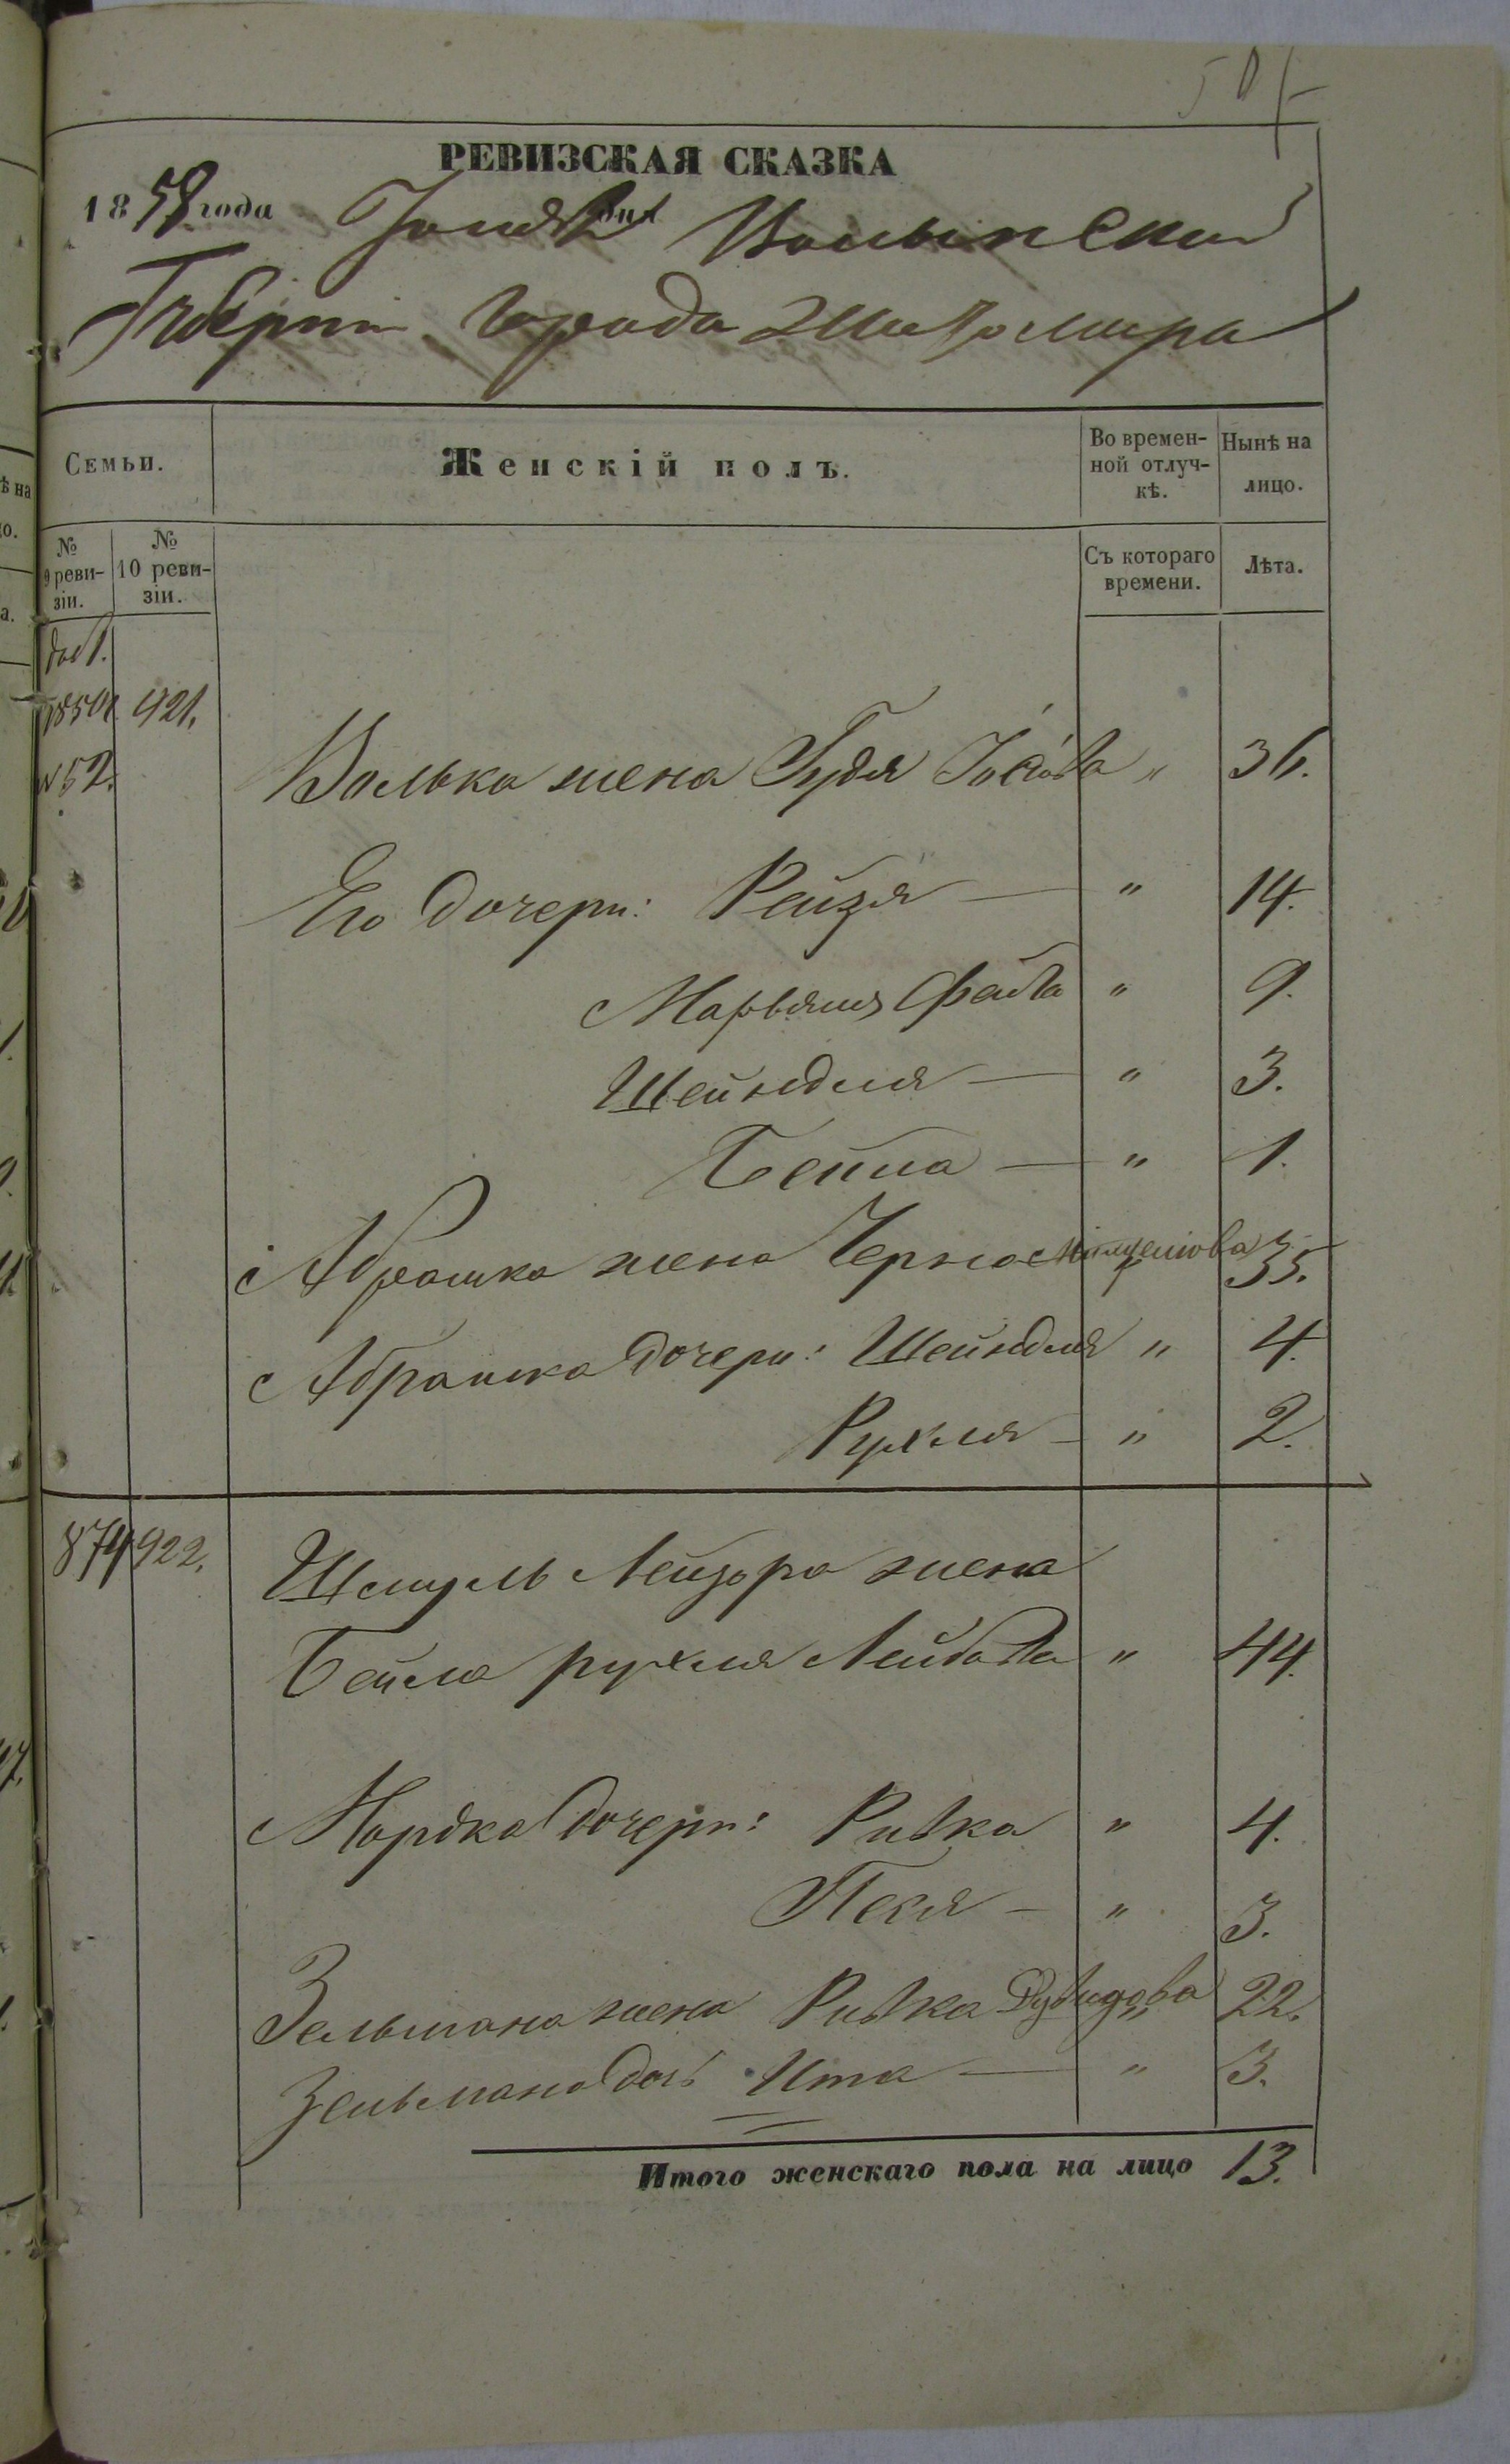 РЕВИЗСКАЯ СКАЗКА
1858 года Іюля дня Волынской
Губерніи города Житомира
Семьи.
Женскій полъ.
Во времен-
ной отлуч-
кѣ.
Нынѣ на
лицо.
№
9 реви-
зіи.
№
10 реви-
зіи.
Съ котораго
времени.
Лѣта.
доп.
1850 г. 921.
№ 52.
Волька жена Гудя " 36.
Его дочери: Рейзя — " 14.
Марьямъ Фейга " 9.
Шейндля — " 3.
Бейла — " 1.
Абрамка жена Черна 35.
Абрамка дочери: Шейндля " 4.
Рухля — " 2.
874 922.
Шмуль Лейзора жена
Бейла рухля Лейбова " 44.
Мордка дочери: Ривка " 4.
Песя — " 3.
Зельмана жена Ривка Дувидова " 22.
Зельмана дочь Ита — " 3.
Итого женскаго пола на лицо 13.